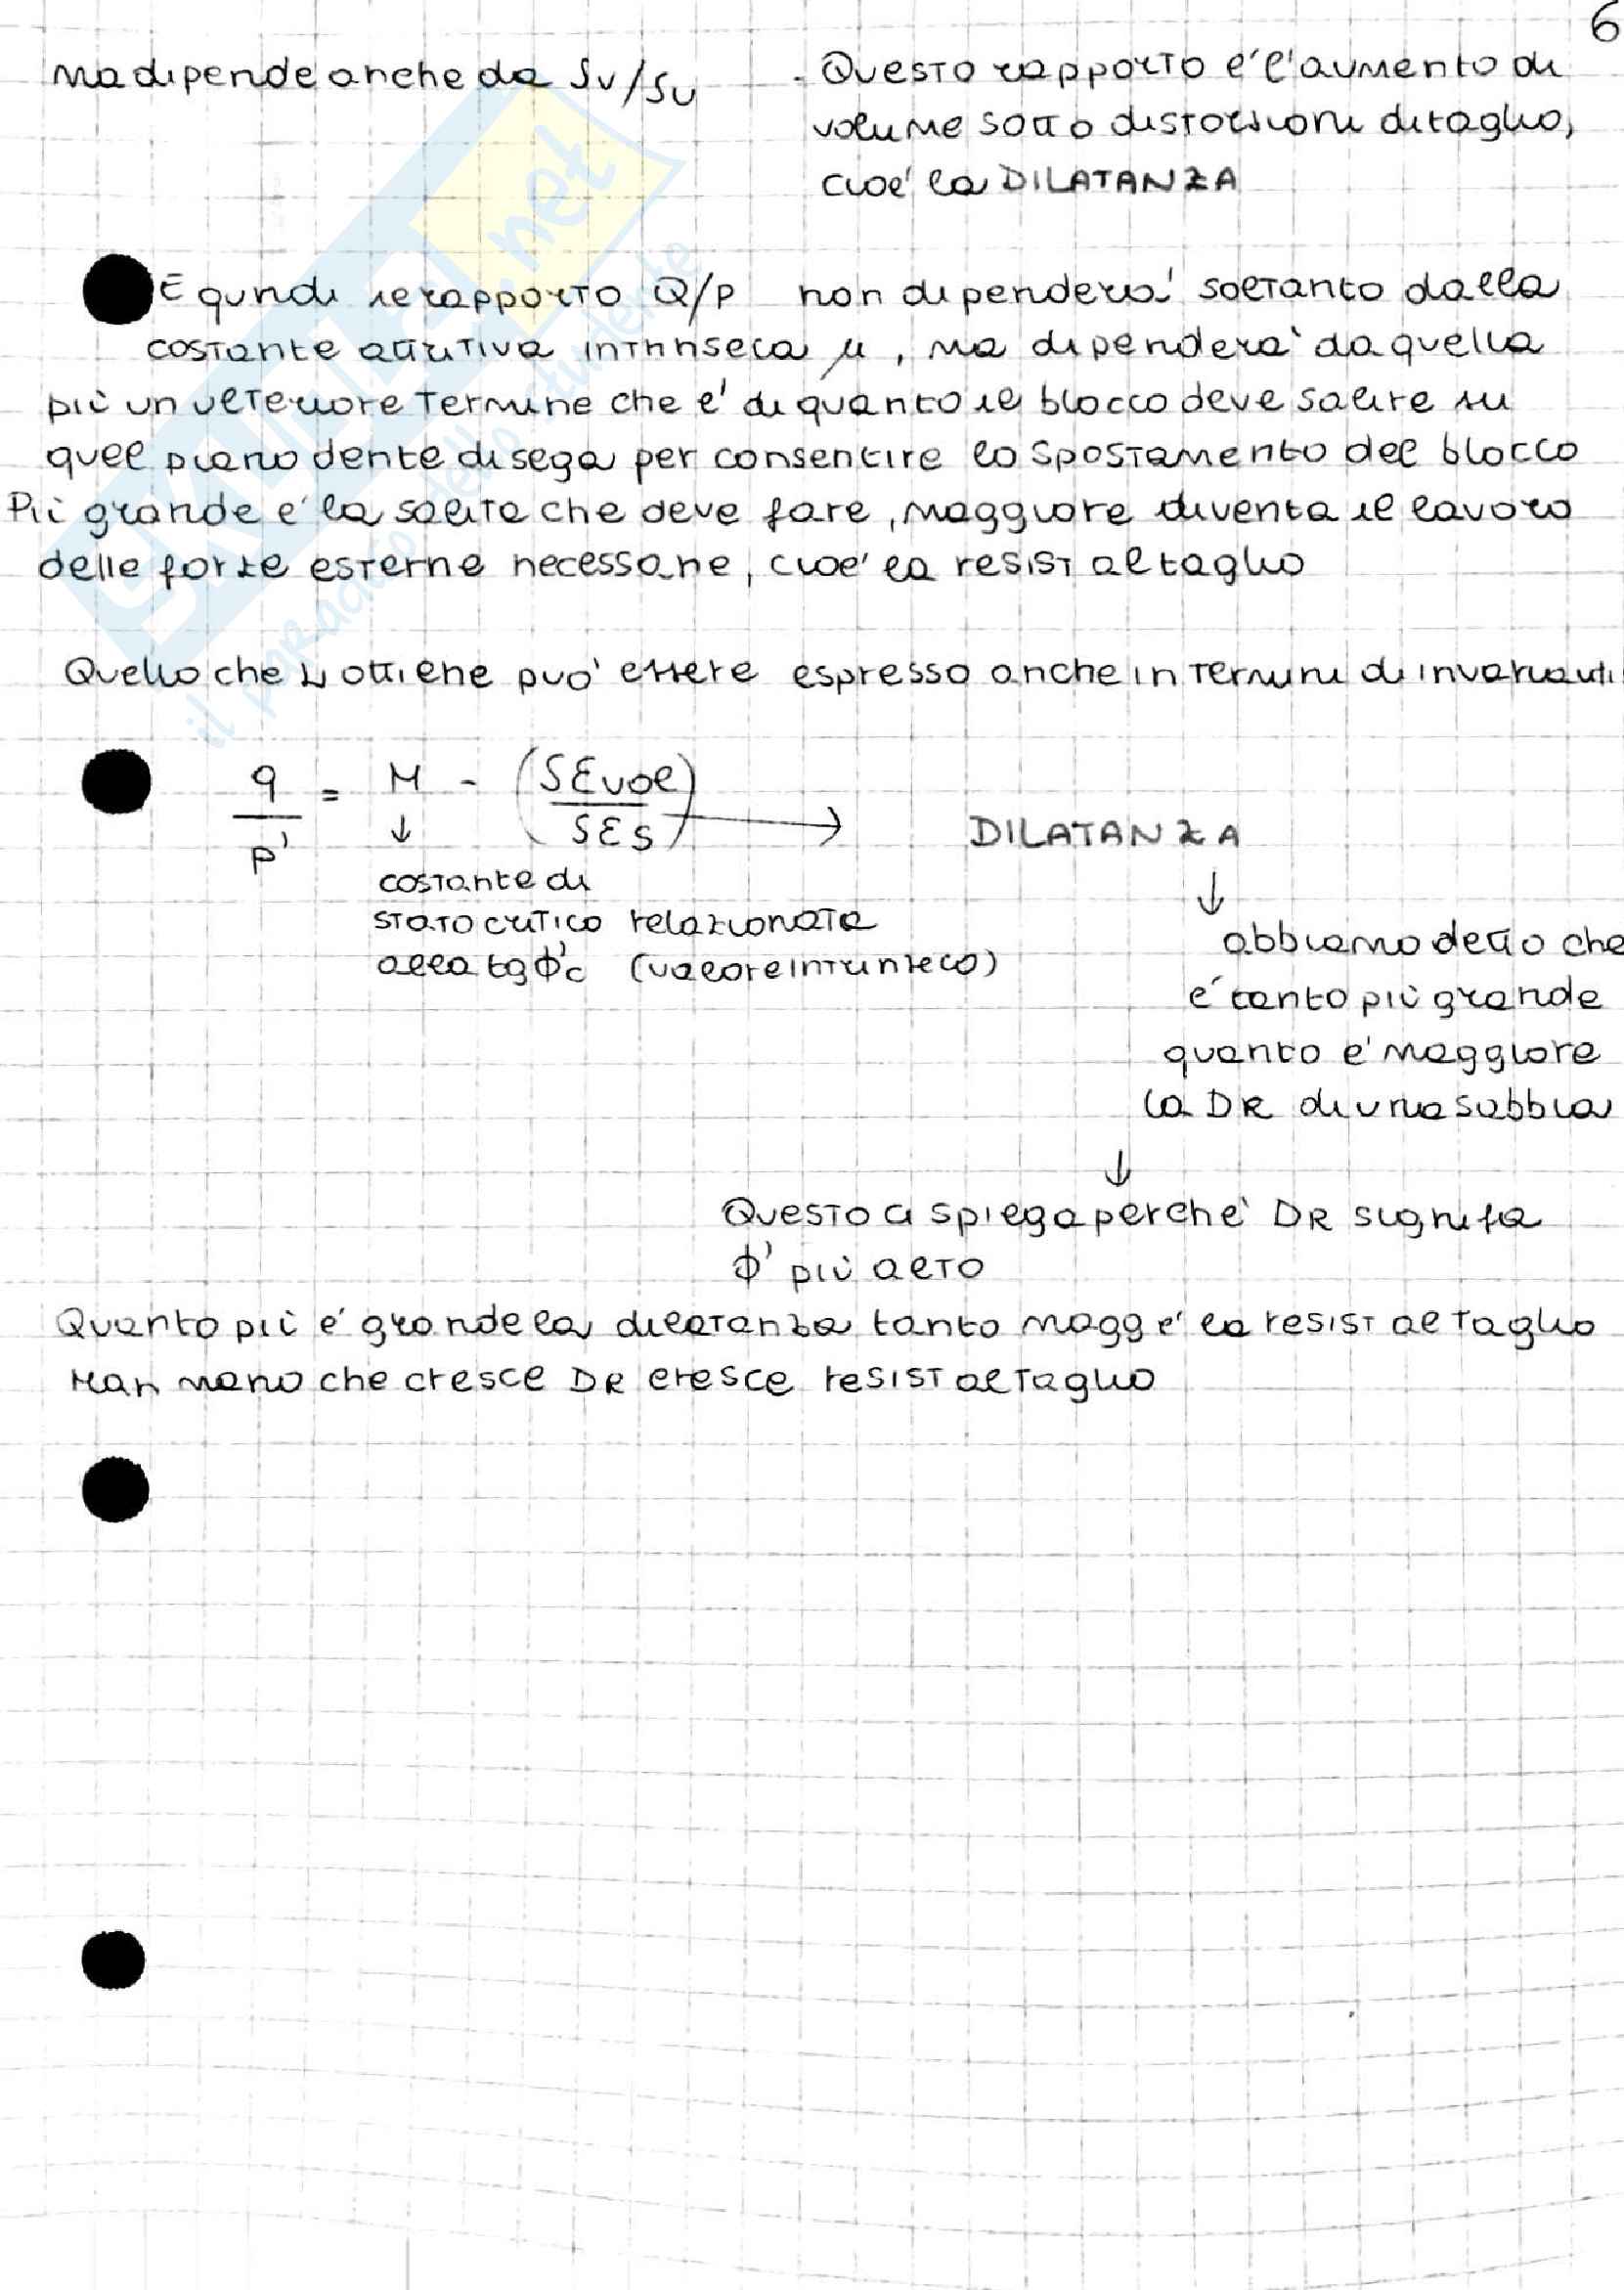 6
ma dipende anche da δv/δu
- Questo rapporto e' l'aumento di
volume sotto distorsioni di taglio,
cioe' la DILATANZA
E quindi il rapporto Q/P non dipendera' soltanto dalla
costante attritiva intrinseca μ, ma dipendera' da quella
più un ulteriore termine che e' di quanto il blocco deve salire su
quel piano dente di sega per consentire lo spostamento del blocco
Più grande e' la salita che deve fare, maggiore diventa il lavoro
delle forze esterne necessarie, cioe' la resist al taglio
Quello che si ottiene puo' essere espresso anche in termini di invarianti
q/p' = M - (δεvol/δεs) → DILATANZA
↓
costante di
stato critico relazionata
alla tg ϕ'c (valore intrinseco)
↓
abbiamo detto che
e' tanto più grande
quanto e' maggiore
la DR di una sabbia
↓
Questo ci spiega perche' DR signifa
ϕ' più alto
Quanto più e' grande la dilatanza tanto magg e' la resist al taglio
Man mano che cresce DR cresce resist al taglio
SKUOLA.net
il paradiso dello studente